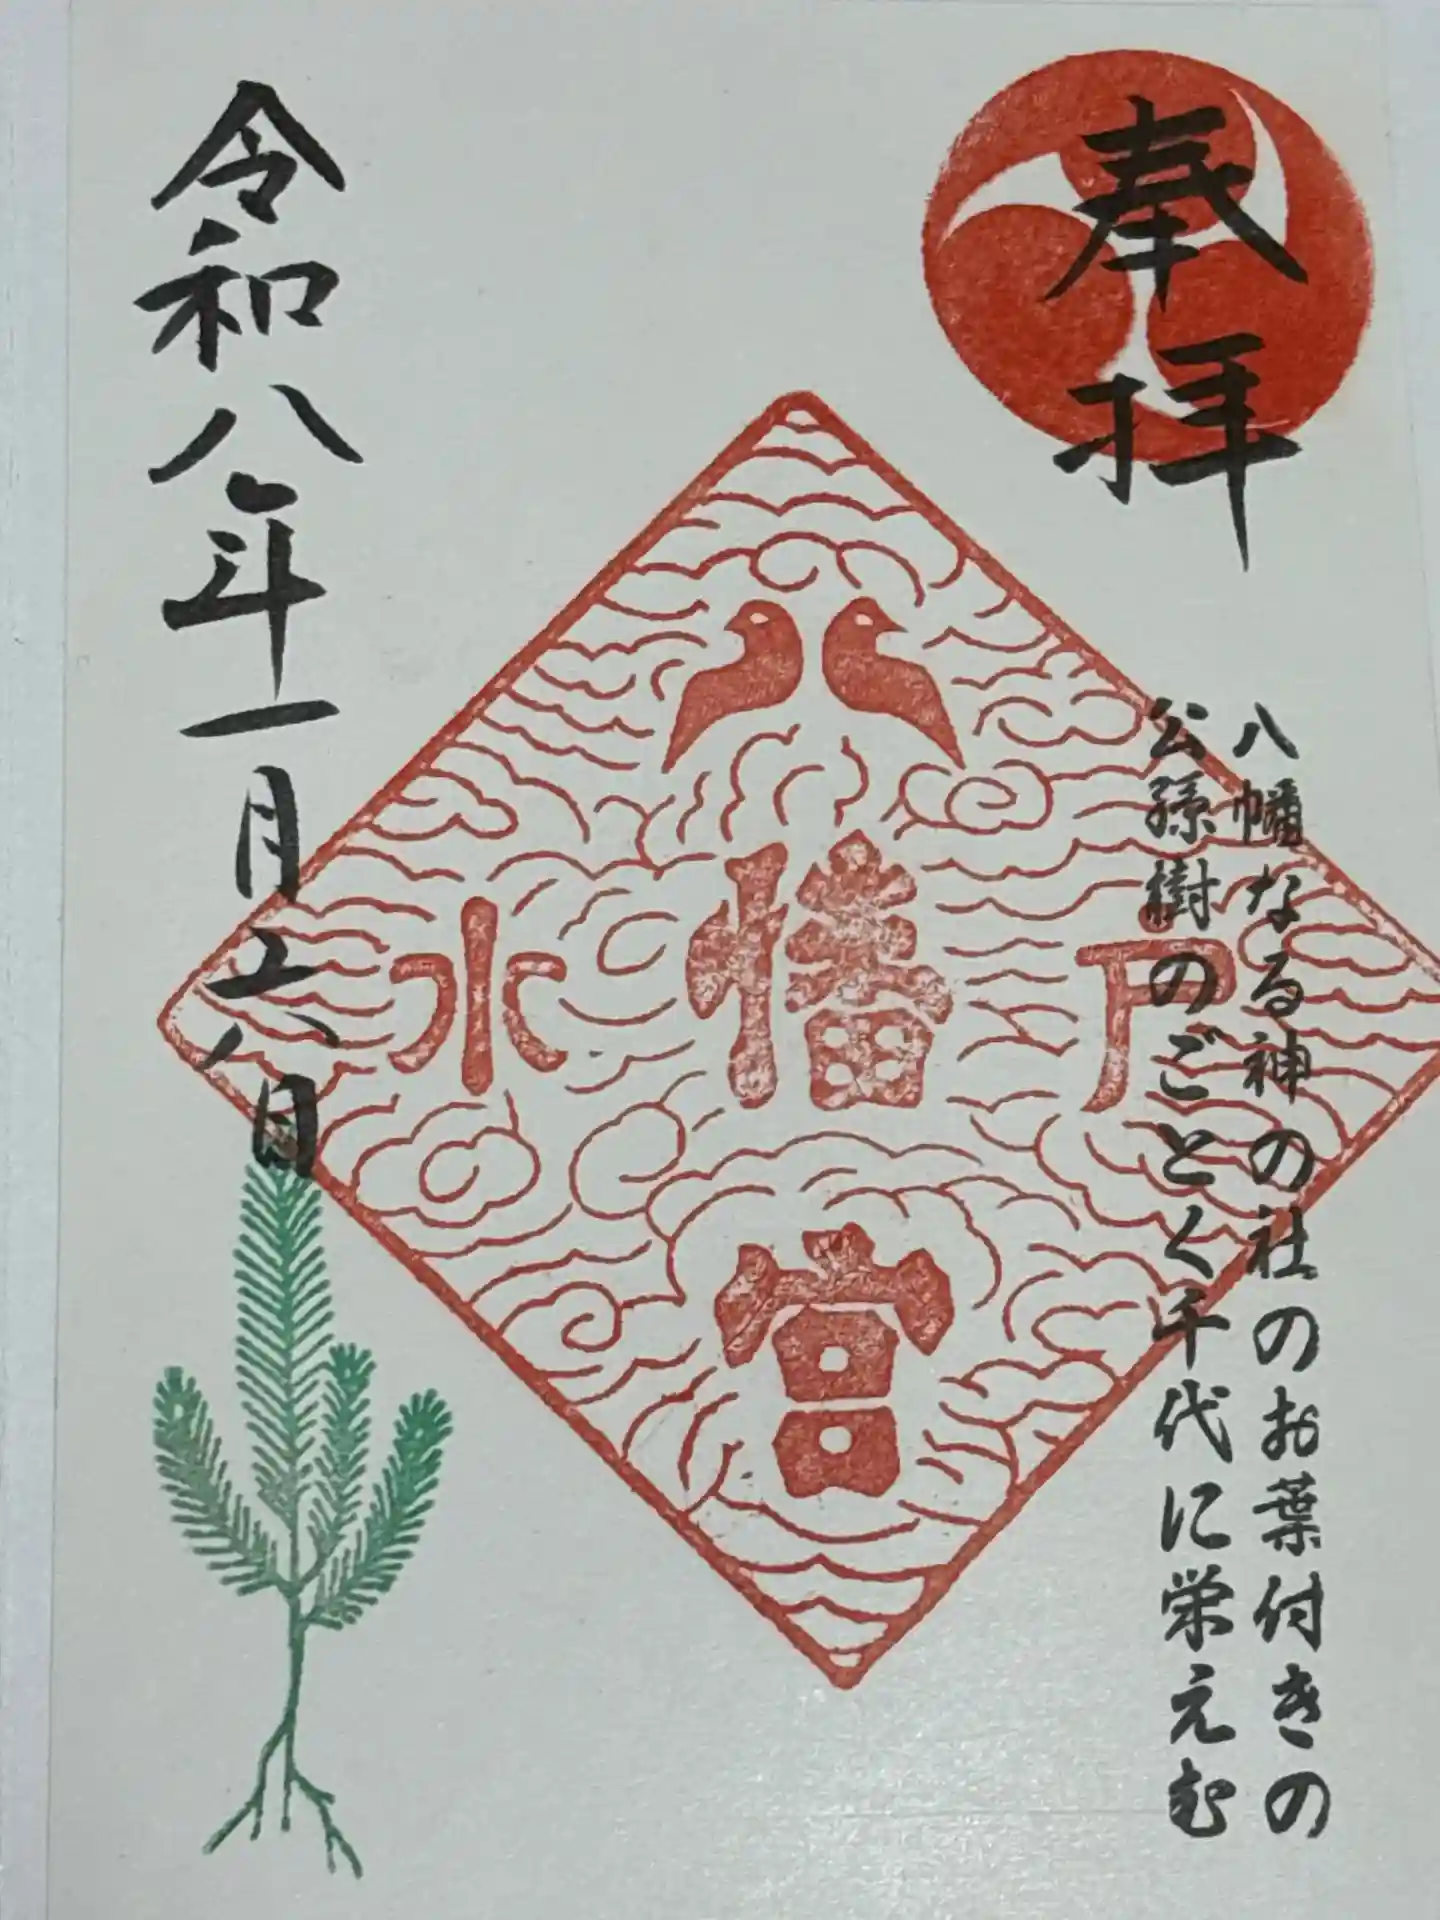 奉拝
八幡なる神の社のお葉付きの
公孫樹のごとく千代に栄えむ
水幡戸
宮
令和八年一月六日